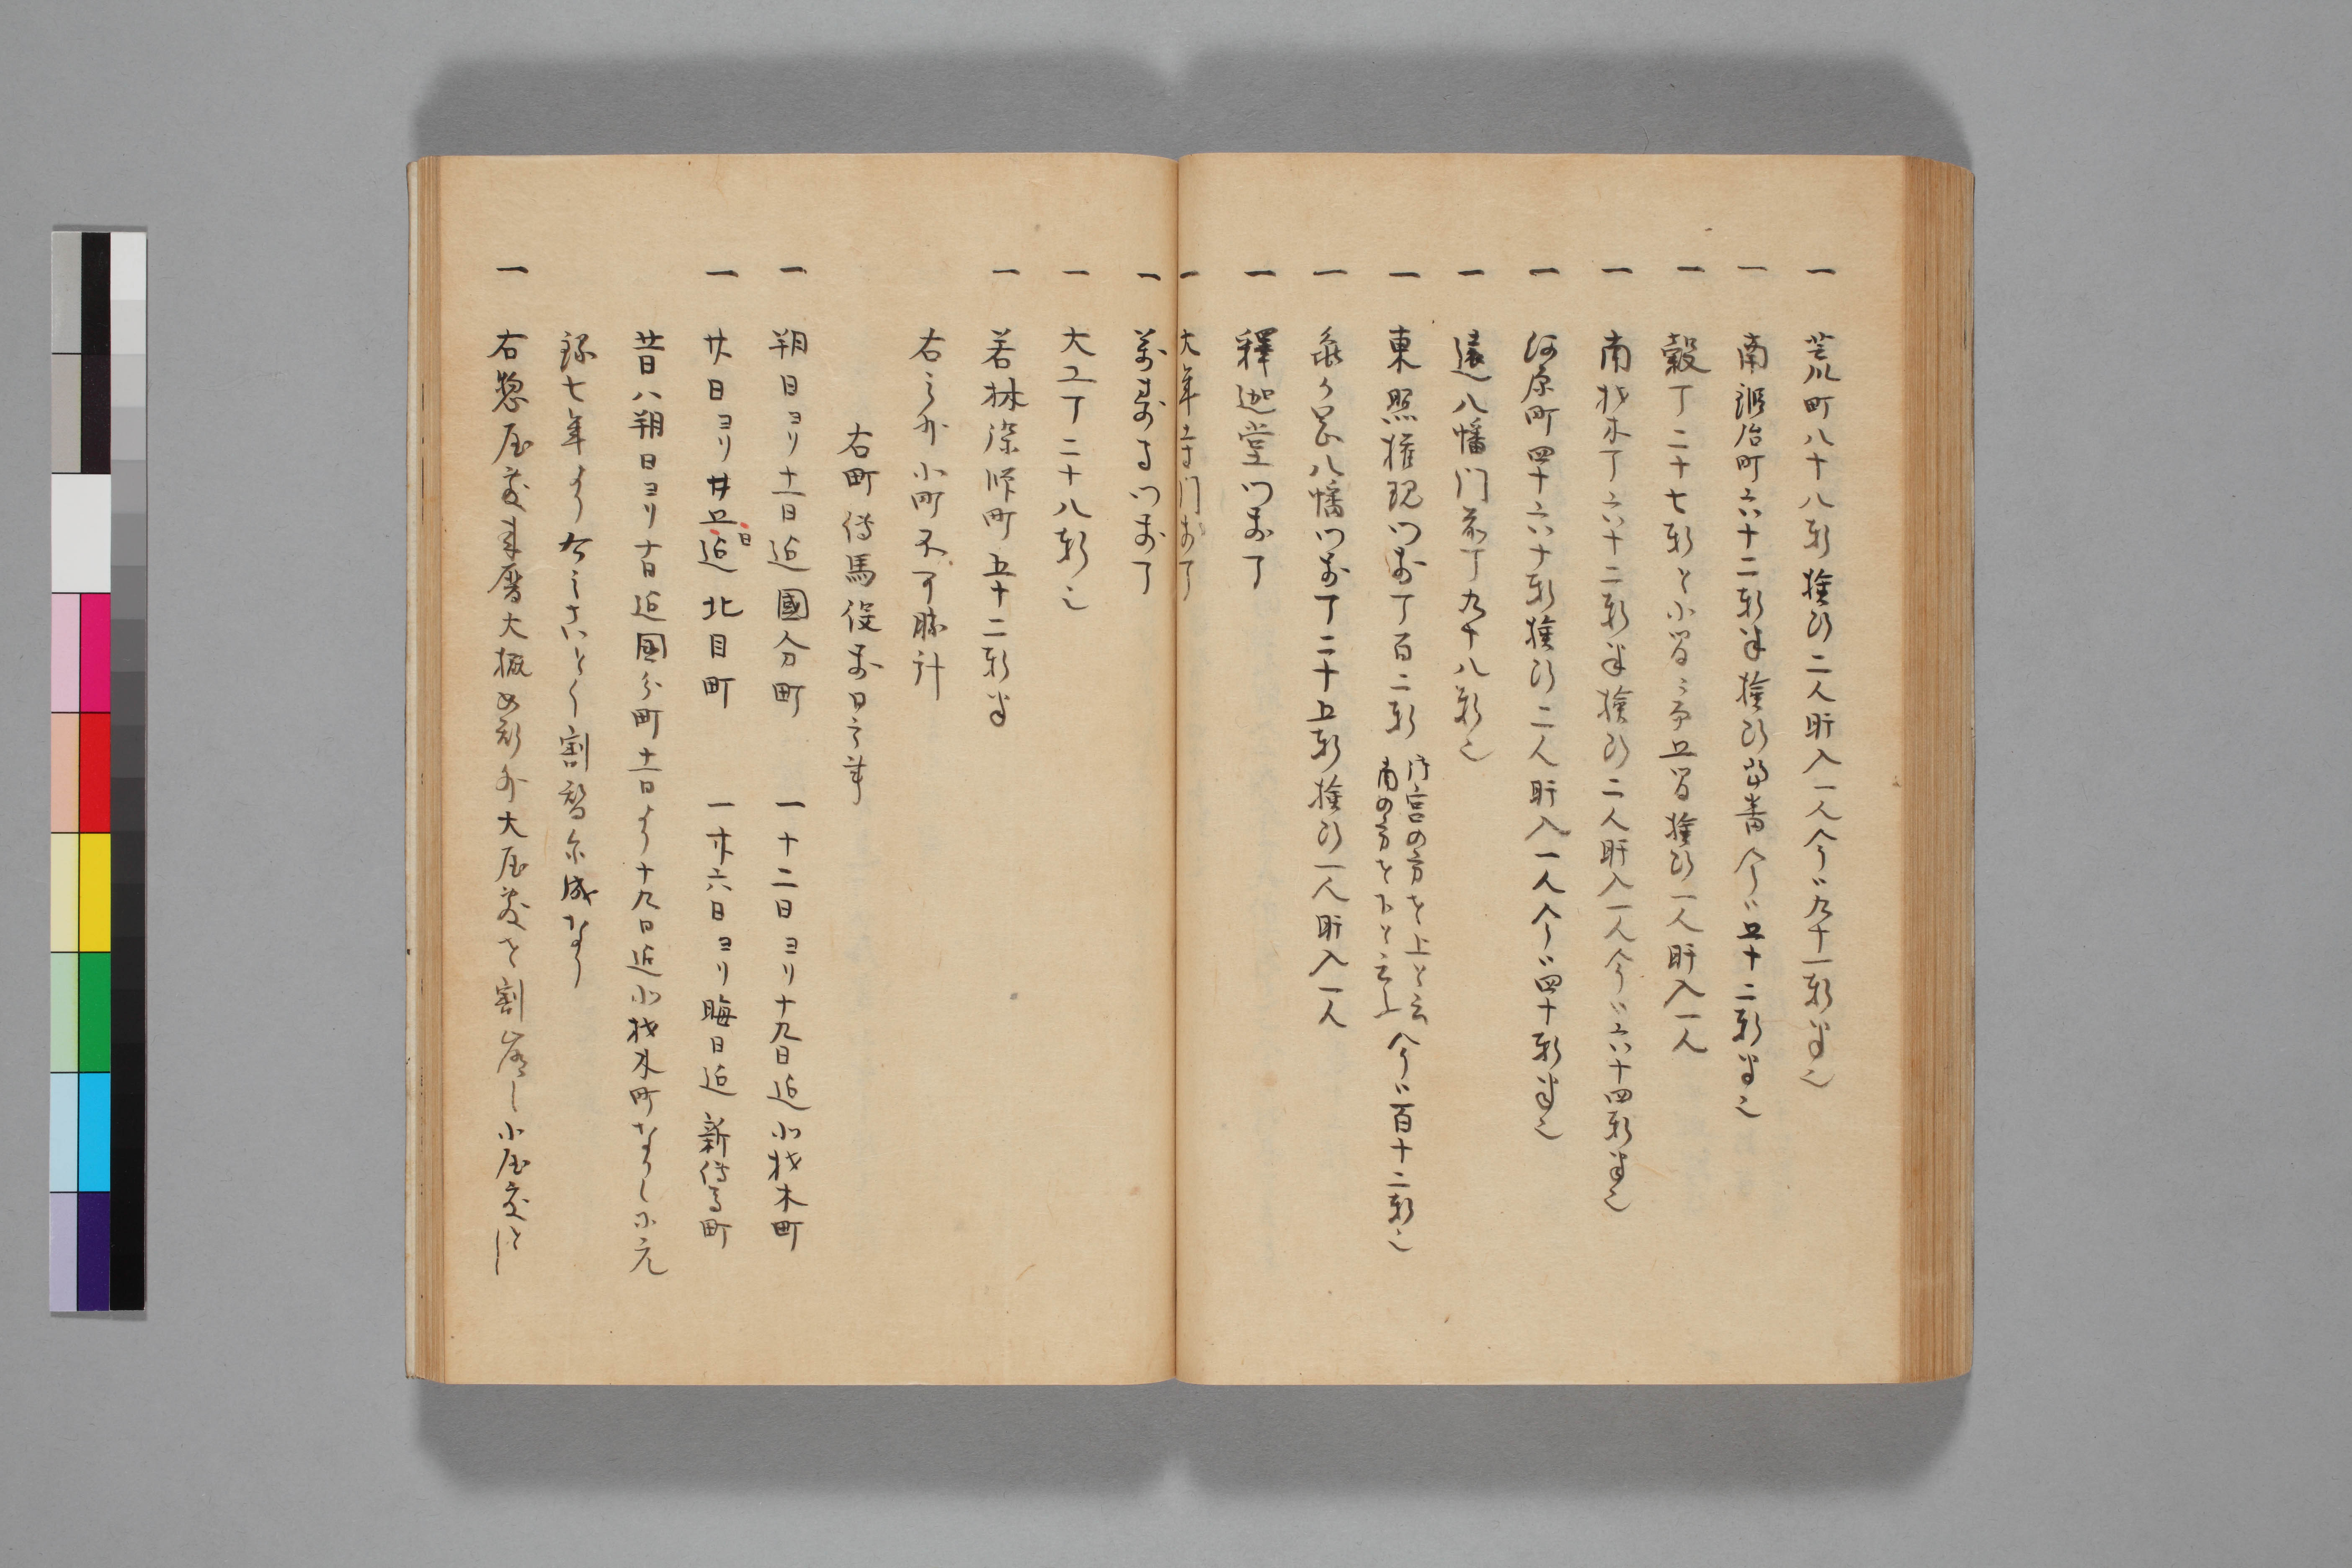 一 荒川町八十八軒 検断二人肝入一人今ハ九十一軒半也
一 南鍛冶町六十二軒半検断 今ハ五十二軒半也
一 穀丁二十七軒と小間 五間検断一人肝入一人
一 南材木丁六十二軒半検断二人肝入一人今ハ六十四軒半也
一 河原町四十六軒検断二人肝入一人今ハ四十軒半也
一 遠八幡門前丁九十八軒也
一 東照権現門前丁百二軒 御宮の方を上と云 南の方を下と云 今ハ百十二軒也
一 亀ケ岡八幡門前丁二十五軒検断一人肝入一人
一 釋迦堂門前丁
一 大年寺門前丁
一 萬寿寺門前丁
一 大工丁二十八軒也
一 若林染師町五十二軒半
右之外小町不可勝計
右町傳馬役前日之事
一 朔日ヨリ十一日迄國分町 一 十二日ヨリ十九日迄北材木町
一 廿日ヨリ廿五日迄北目町 一 廿六日ヨリ晦日迄新傳馬町
昔日ハ朔日ヨリ十日迄国分町十一日より十九日迄北材木町なりしに元
禄七年より右之ことく割替に成なり
一 右惣屋敷 大概如斯外大屋敷を割 小屋敷と